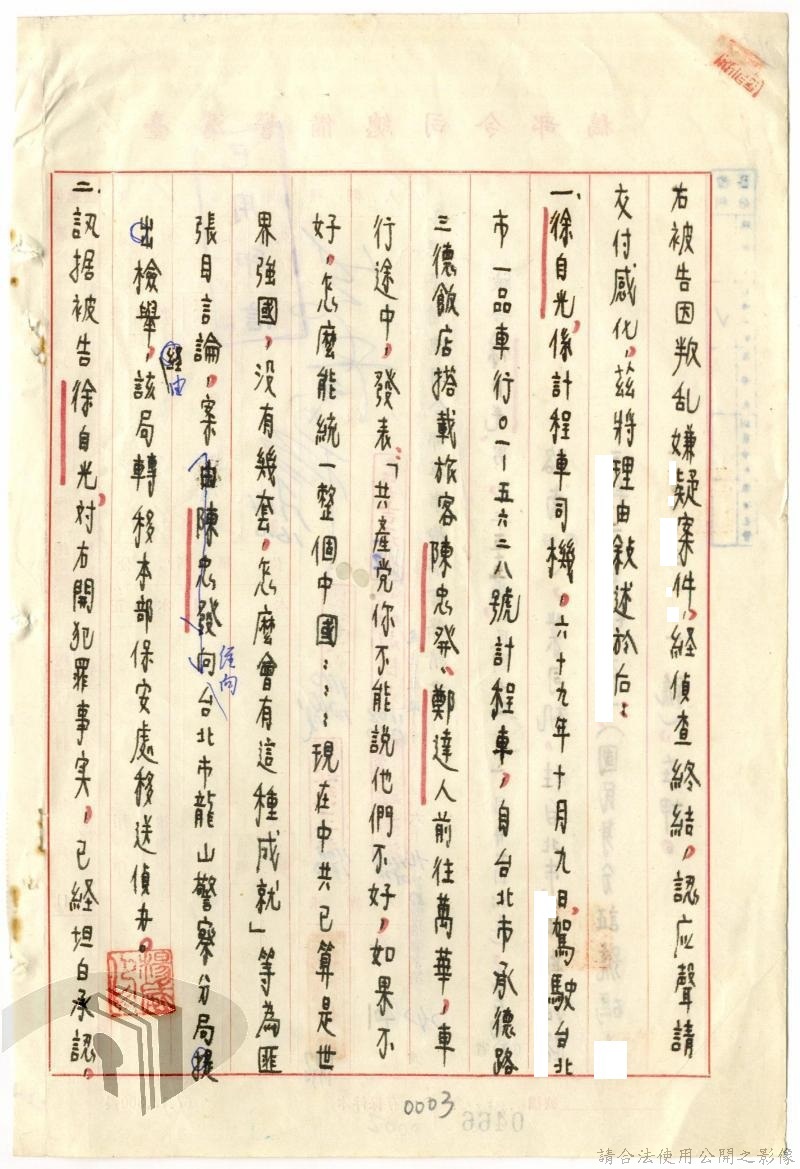 右被告因叛乱嫌疑案件，経偵查終結，認应聲請
交付感化，茲將理由敍述於后：
一、徐自光，係計程車司機，六十九年十月九日，駕駛台北
市一品車行０一－五六二八號計程車，自台北市承德路
三德飯店搭載旅客陳忠発、鄭達人前往萬華，車
行途中，發表「共產党你不能說他們不好，如果不
好，怎麼能統一整個中國……現在中共已算是世
界強國，沒有幾套，怎麼會有這種成就」等為匪
張目言論，案由陳忠發向台北市龍山警察分局提
経由
径向
出檢舉，該局轉移本部保安處移送偵办。
二、訊据被告徐自光，対右開犯罪事実，已経坦白承認，
0003
0466
請合法使用公開之影像